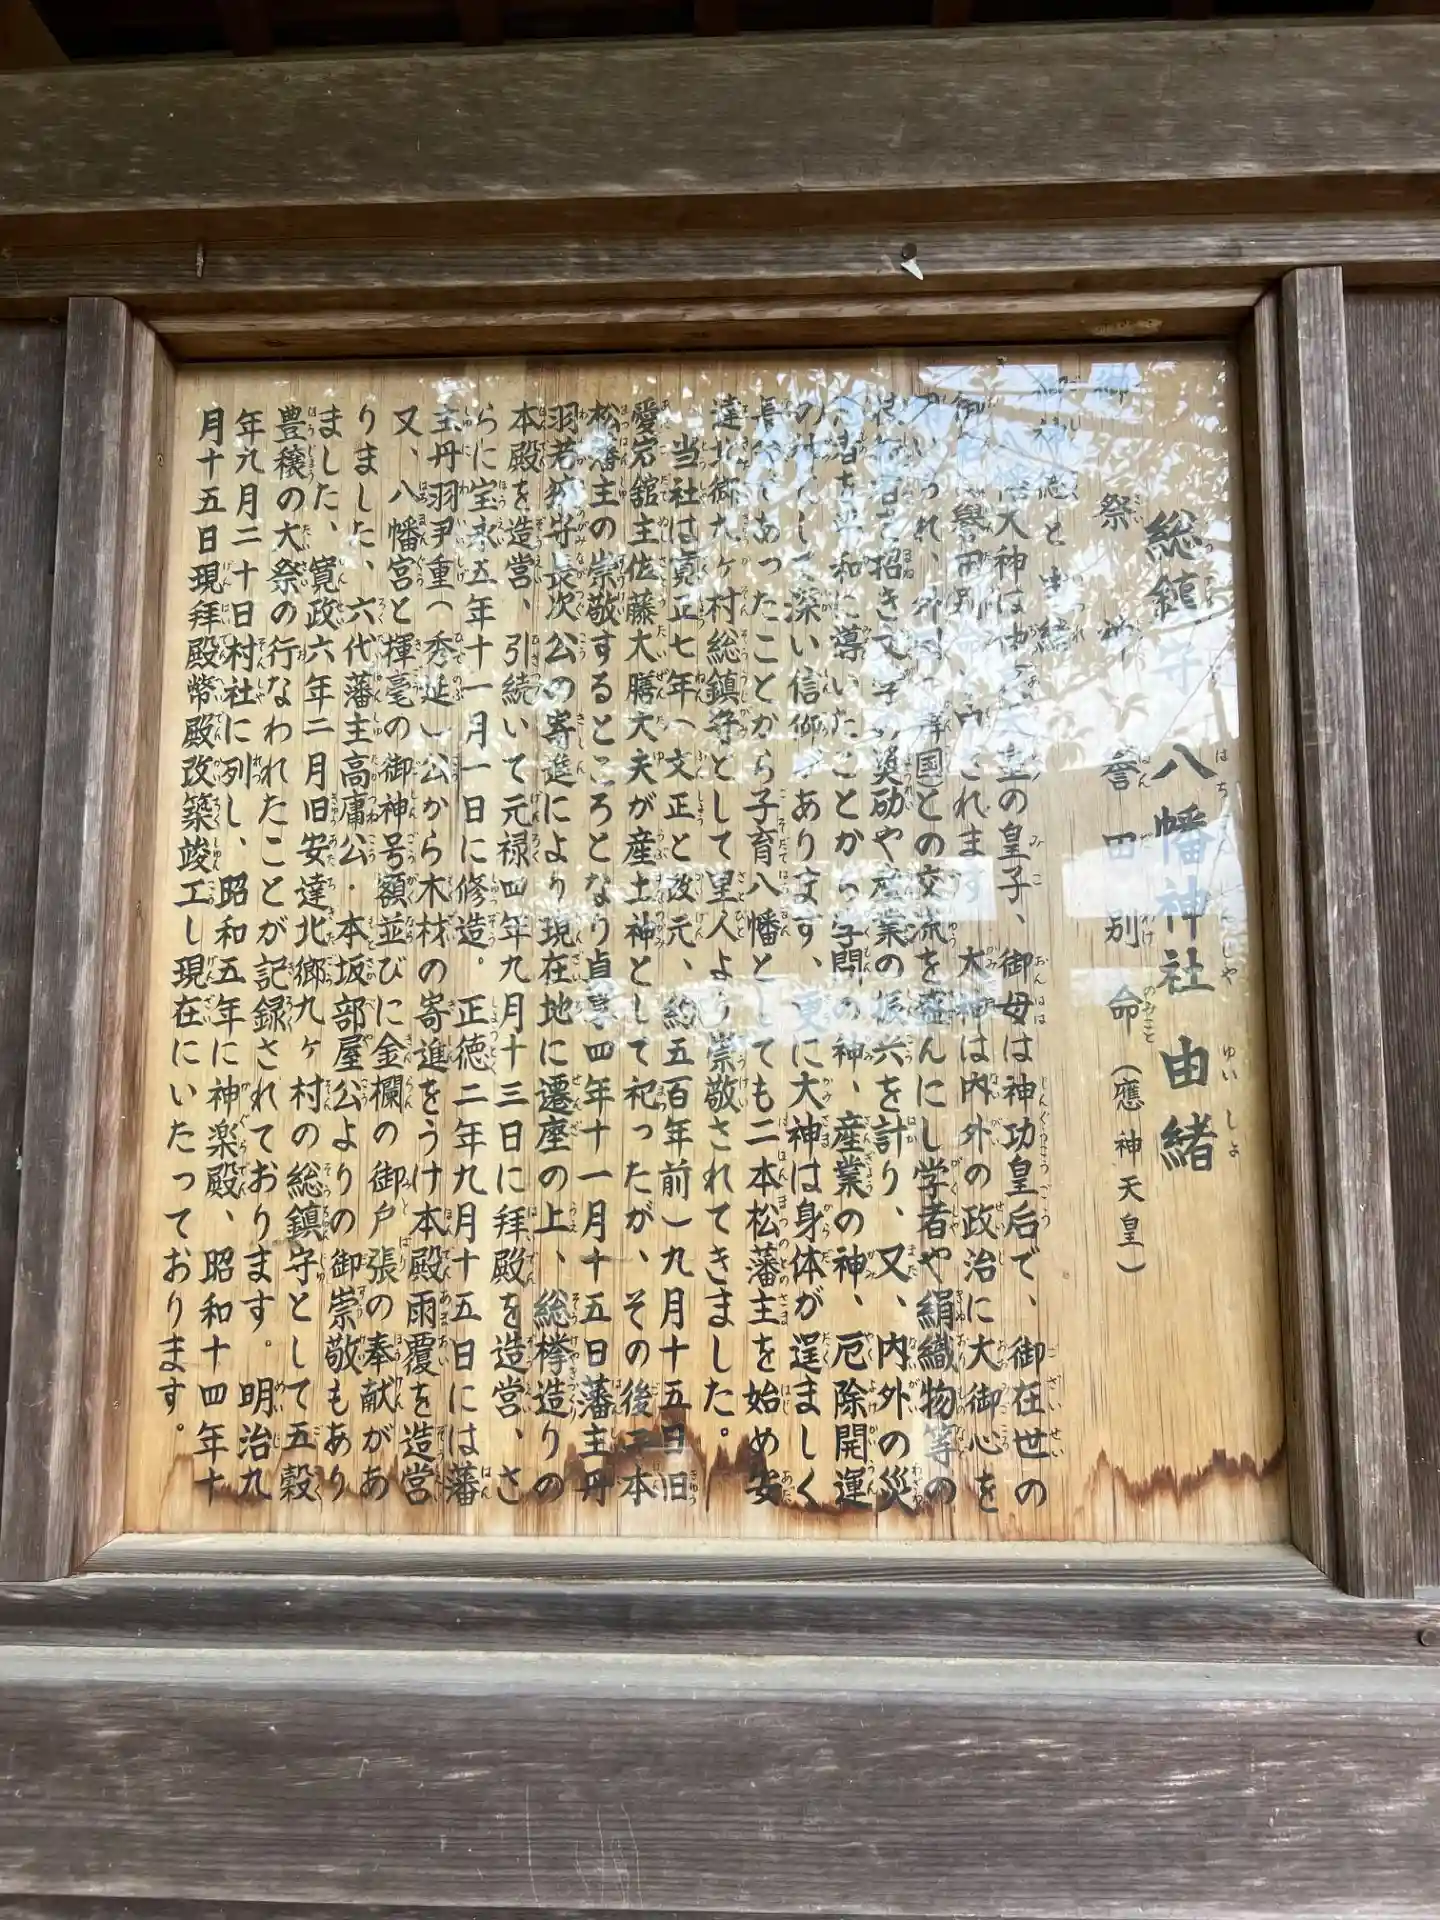 総鎮守 八幡神社 由緒
祭神 誉田別命(應神天皇)
御神徳と由緒
大神は 天皇の皇子、御母は神功皇后で、御在世の
御名を譽田別 れます 大神は内外の政治に大御心を
用いられ、外国 諸国との交流を盛んにし学者や絹織物等の
招き文学の奨励や産業の振興を計り、又、内外の災
平和に導いたことから学問の神、産業の神、厄除開運
の神として深い信仰があります、更に大神は身体が逞ましく
長 であったことから子育八幡としても二本松藩主を始め安
達北郷九ヶ村総鎮守として里人より崇敬されてきました。
当社は寛正七年(文正と改元、約五百年前)九月十五日旧
愛宕舘主佐藤大膳大夫が産土神として祀ったが、その後二本
松藩主の崇敬するところとなり貞享四年十一月十五日藩主丹
羽若狭守長次公の寄進により現在地に遷座の上、総欅造りの
本殿を造営、引続いて元禄四年九月十三日に拝殿を造営、さ
らに宝永五年十一月一日に修造。正徳二年九月十五日には藩
主丹羽 重(秀延)公から木材の寄進をうけ本殿雨覆を造営
又、八幡宮と揮毫の御神号額並びに金欄の御戸張の奉献があ
りました、六代藩主高庸公・本坂部屋公よりの御崇敬もあり
ました、寛政六年二月旧安達北郷九ヶ村の総鎮守として五穀
豊穣の大祭の行なわれたことが記録されております。明治九
年九月二十日村社に列し、昭和五年に神楽殿、昭和十四年十
月十五日現拝殿幣殿改築竣工し現在にいたっております。